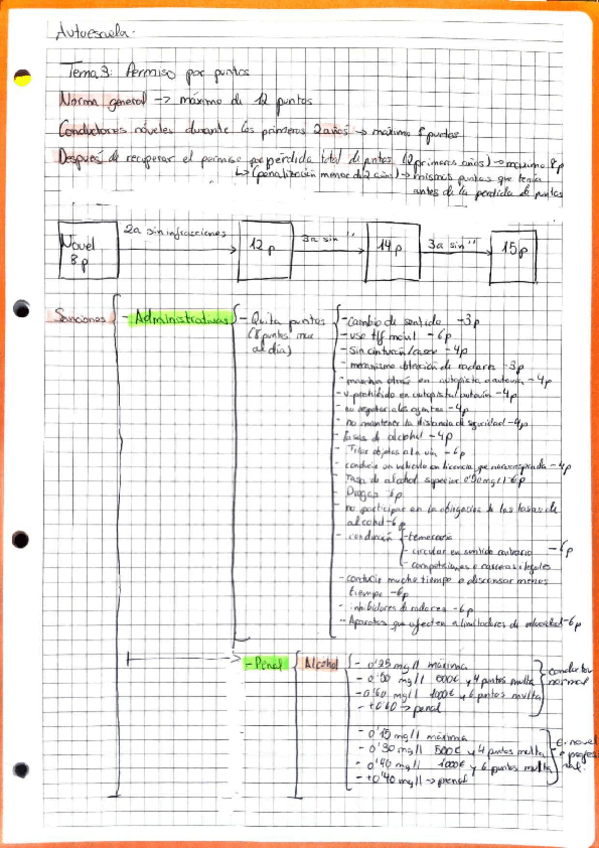 Autoescuela.
Tema 3: Permiso por puntos
Norma general -> máximo de 12 puntos
Conductores nóveles durante los primeros 2 años -> máximo 8 puntos
Después de recuperar el permiso por pérdida total de puntos (2 primeros años) -> máximo 8p
↳ (penalización menor de 2 años) -> mismos puntos que tenía
antes de la perdida de puntos
Novel 8p
2a sin infracciones
12p
3a sin "
14p
3a sin "
15p
Sanciones
- Administrativas
- Quita puntos
(8 puntos max
al día)
- cambio de sentido -3p
- uso tlf móvil -6p
- sin cinturón/casco -4p
- mecanismo detección de radares -3p
- marcha atrás en autopista o autovía -4p
- v. prohibido en autopista/autovía -4p
- no respetar a los agentes -4p
- no mantener la distancia de seguridad -4p
- tasas de alcohol -4p
- Tirar objetos a la vía -6p
- conducir un vehículo con licencia que no corresponda -4p
- Tasa de alcohol superior 0'50 mg/l -6p
- Drogas -6p
- no participar en la obligación de las tasas de
alcohol -6p
- conducción
- temeraria
- circular en sentido contrario
- competiciones o carreras ilegales
-6p
- conducir mucho tiempo o descansar menos
tiempo -6p
- inhibidores de radares -6p
- Aparatos que afecten a limitadores de velocidad -6p
- Penal
Alcohol
- 0'25 mg/l máxima
- 0'50 mg/l 500€ y 4 puntos multa
- 0'60 mg/l 1000€ y 6 puntos multa
- +0'60 -> penal
conductor
normal
- 0'15 mg/l máxima
- 0'30 mg/l 500€ y 4 puntos multa
- 0'40 mg/l 1000€ y 6 puntos multa
- +0'40 mg/l -> penal
C. novel